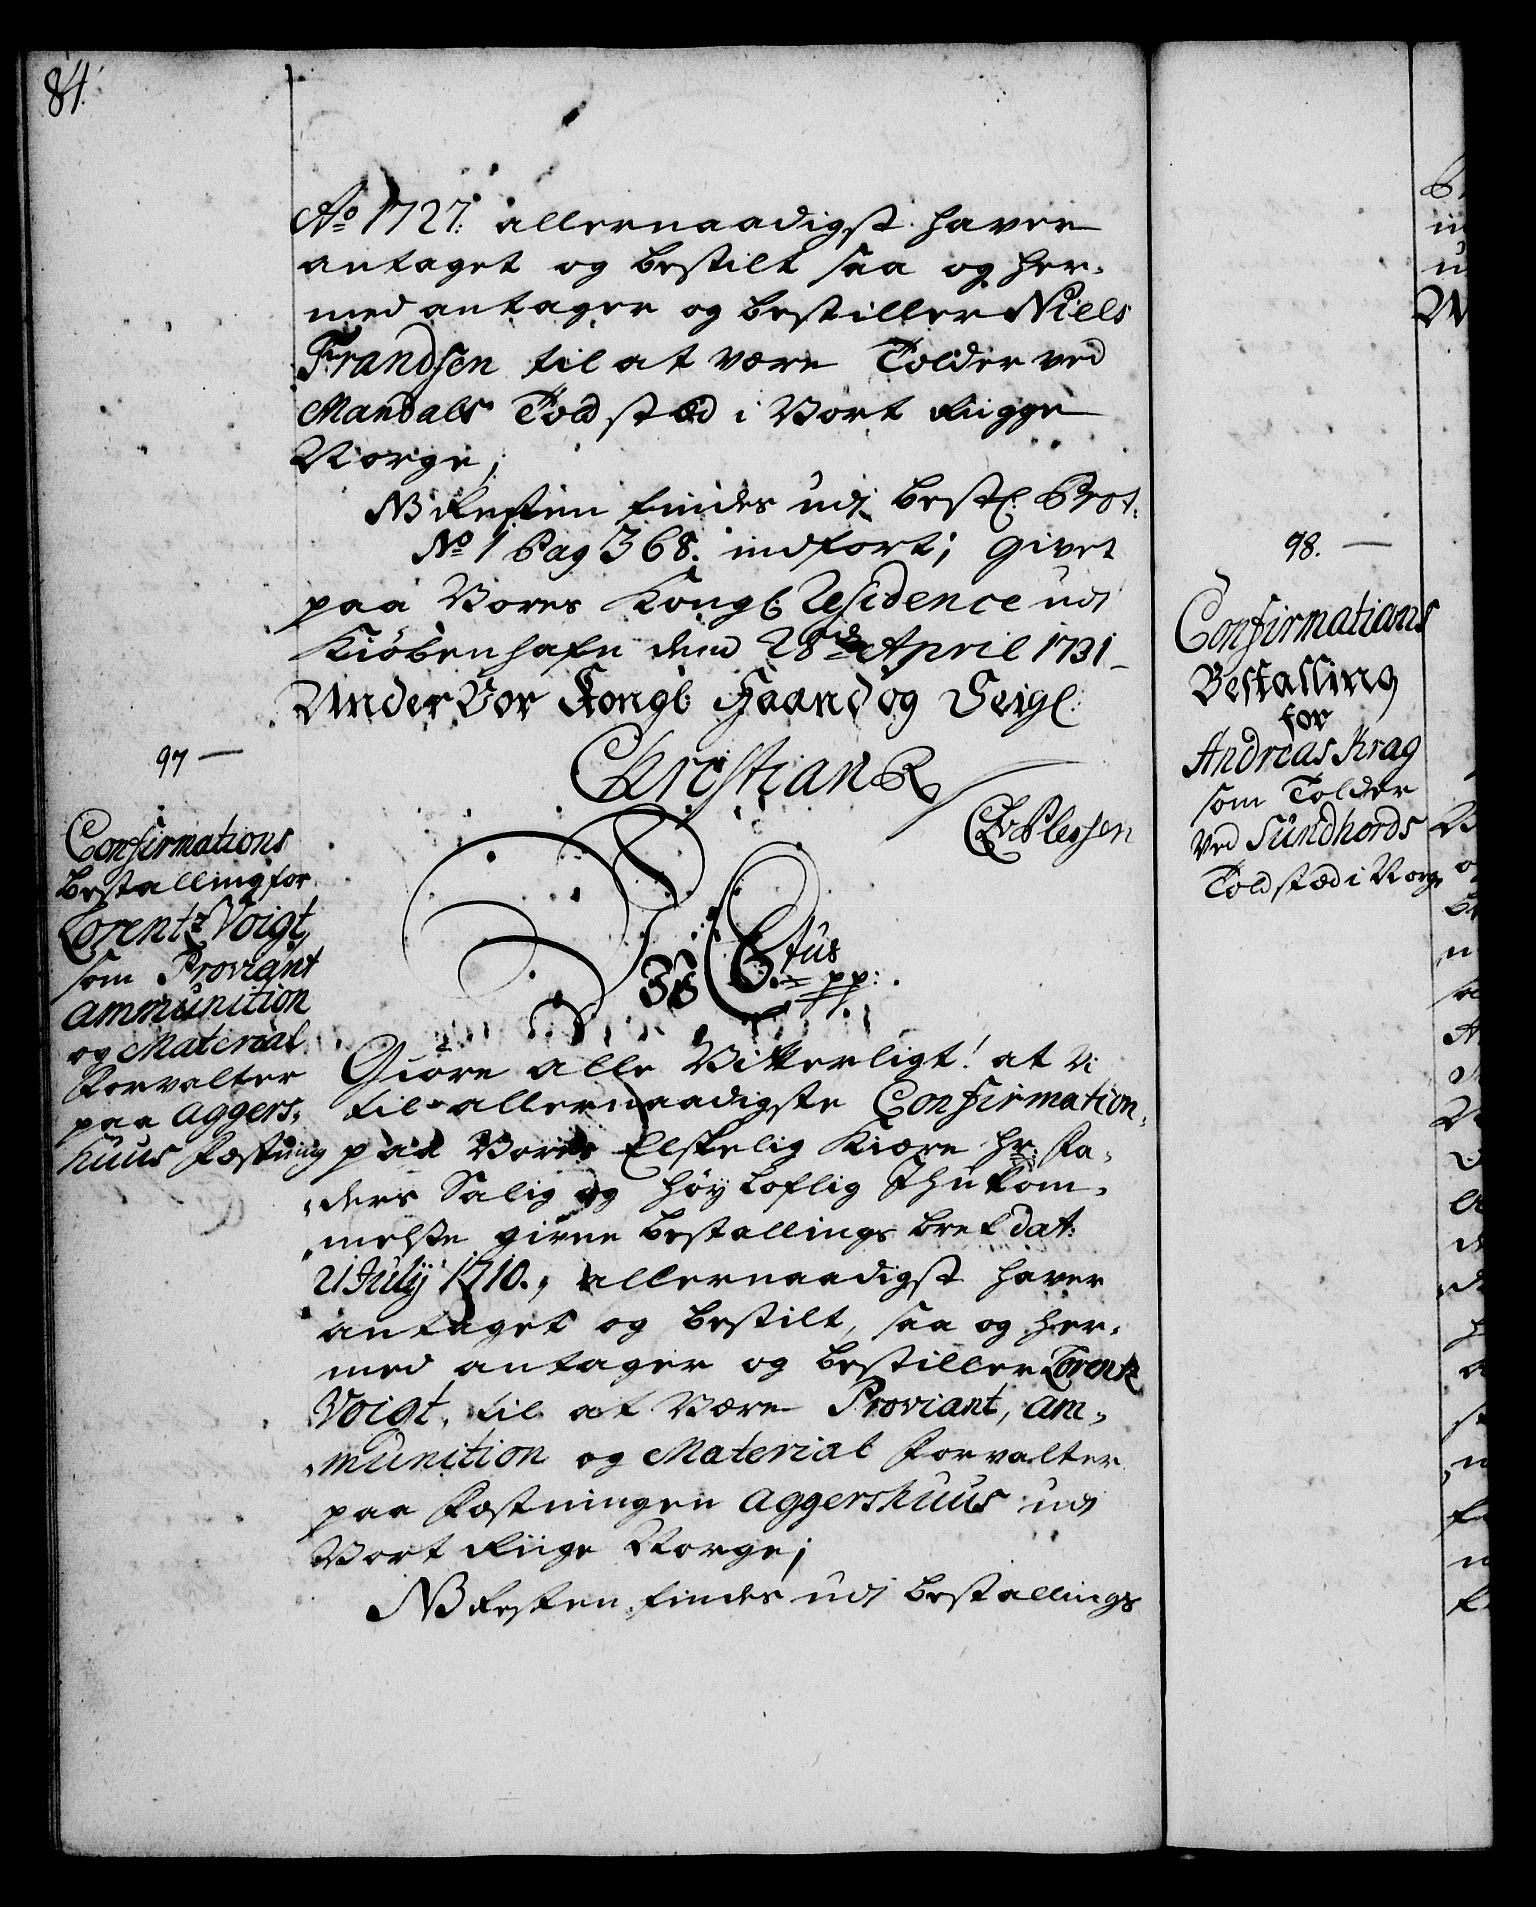 84.
Ao 1727: allernaadigst haver
antaget og bestilt saa og her-
med antager og bestiller Niels
Frandsen til at være Tolder ved
Mandals Toldstæd i Vort Riige
Norge;
NB Resten findes udj Bestl: Prot:
No 1 Pag 368. indfort; Givet
paa Vores Kongl: Residence udi
Kiöbenhafn dend 28de April 1731
Under Vor Kongl: Haand og Seigl:
Christian R
CAvPlessen
97
Confirmations
bestalling for
Lorentz Voigt
som Proviant
ammunition
og Material
Forvalter
paa Aggers-
huus Fæstning
Dc 6tus
pp:
Giöre alle Vitterligt! at Vi
til allernaadigste Confirmation
paa Vores Elskelig Kiære Hr: Fa-
ders Salig og Höyloflig Ihukom-
melse givne bestallings bref dat:
21 Julij 1710., allernaadigst haver
antaget og bestilt, saa og her-
med antager og bestiller Lorentz
Voigt, til at være Proviant, am-
munition og Material Forvalter
paa Fæstningen Aggershuus udi
Vort Riige Norge;
NB Resten findes udj bestallings
98.
Confirmations
Bestalling
for
Andreas Krag
som Tolder
ved Sundhords
Toldstæd i Norge